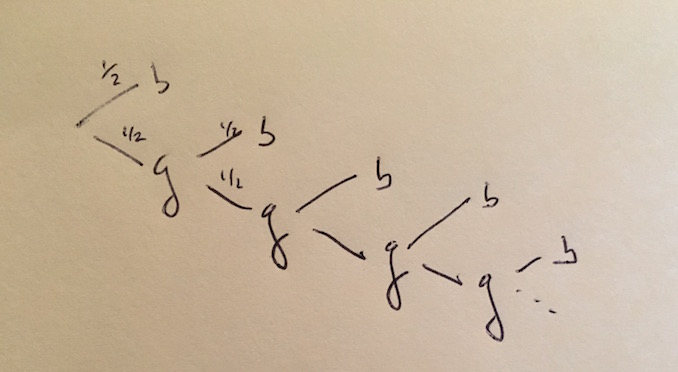 1/2 b
1/2 g 1/2 b
1/2 g b
g b
g b
...